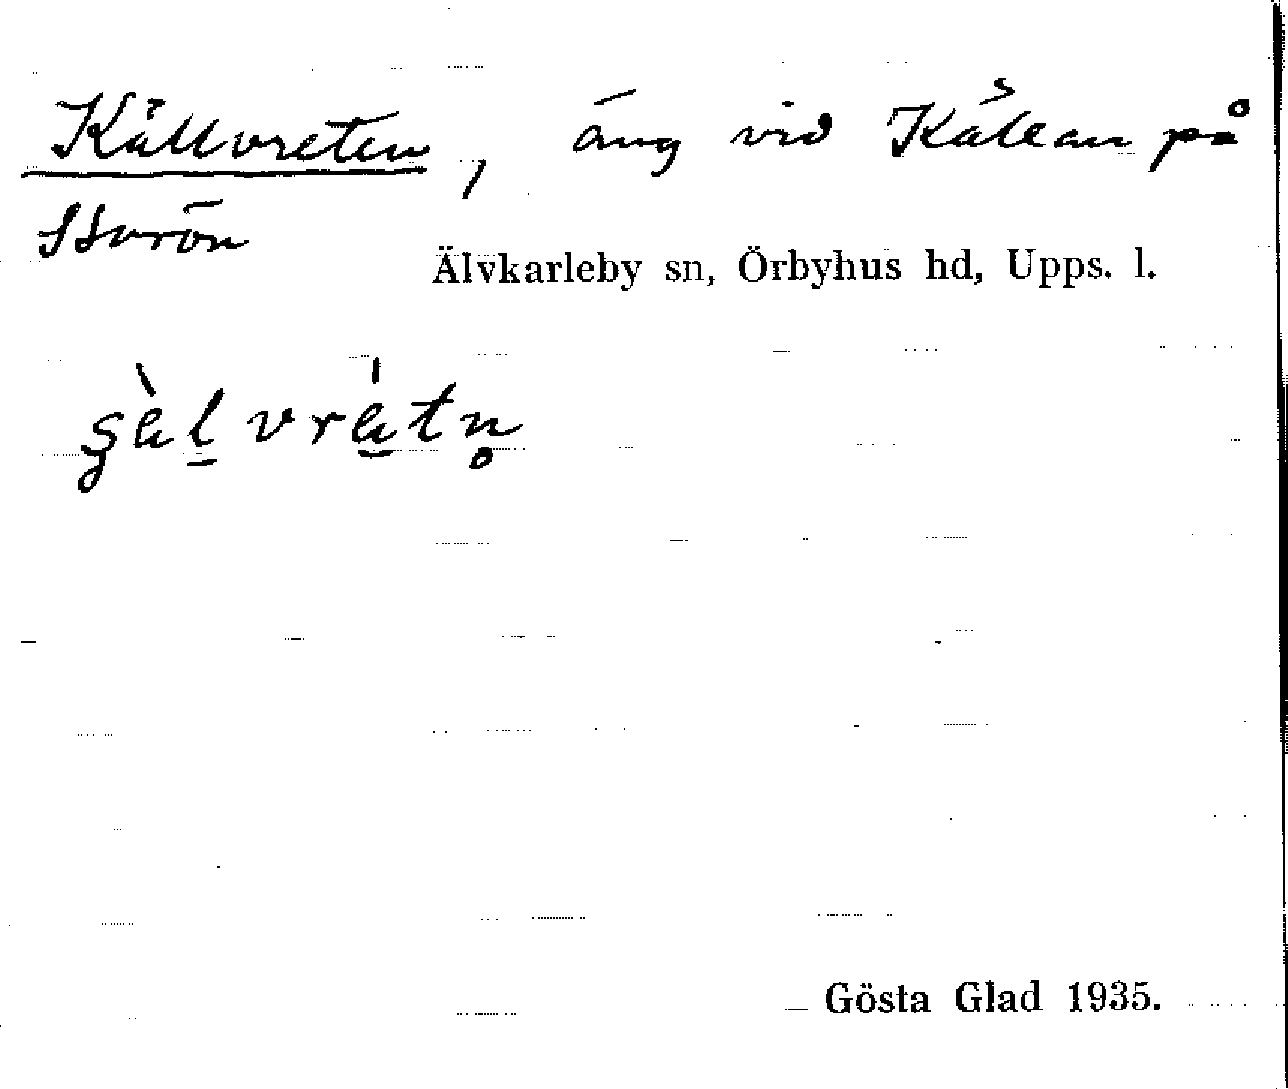 Källvreten, äng vid Källan på
Storön
Älvkarleby sn, Örbyhus hd, Upps. l.
Gösta Glad 1935.